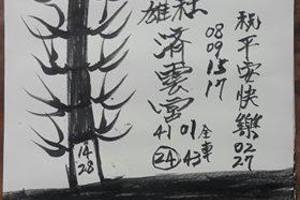 祝平安快樂
02
27
08
09
15
17
雄
濟雲
41
01
全車
24
43
14
28